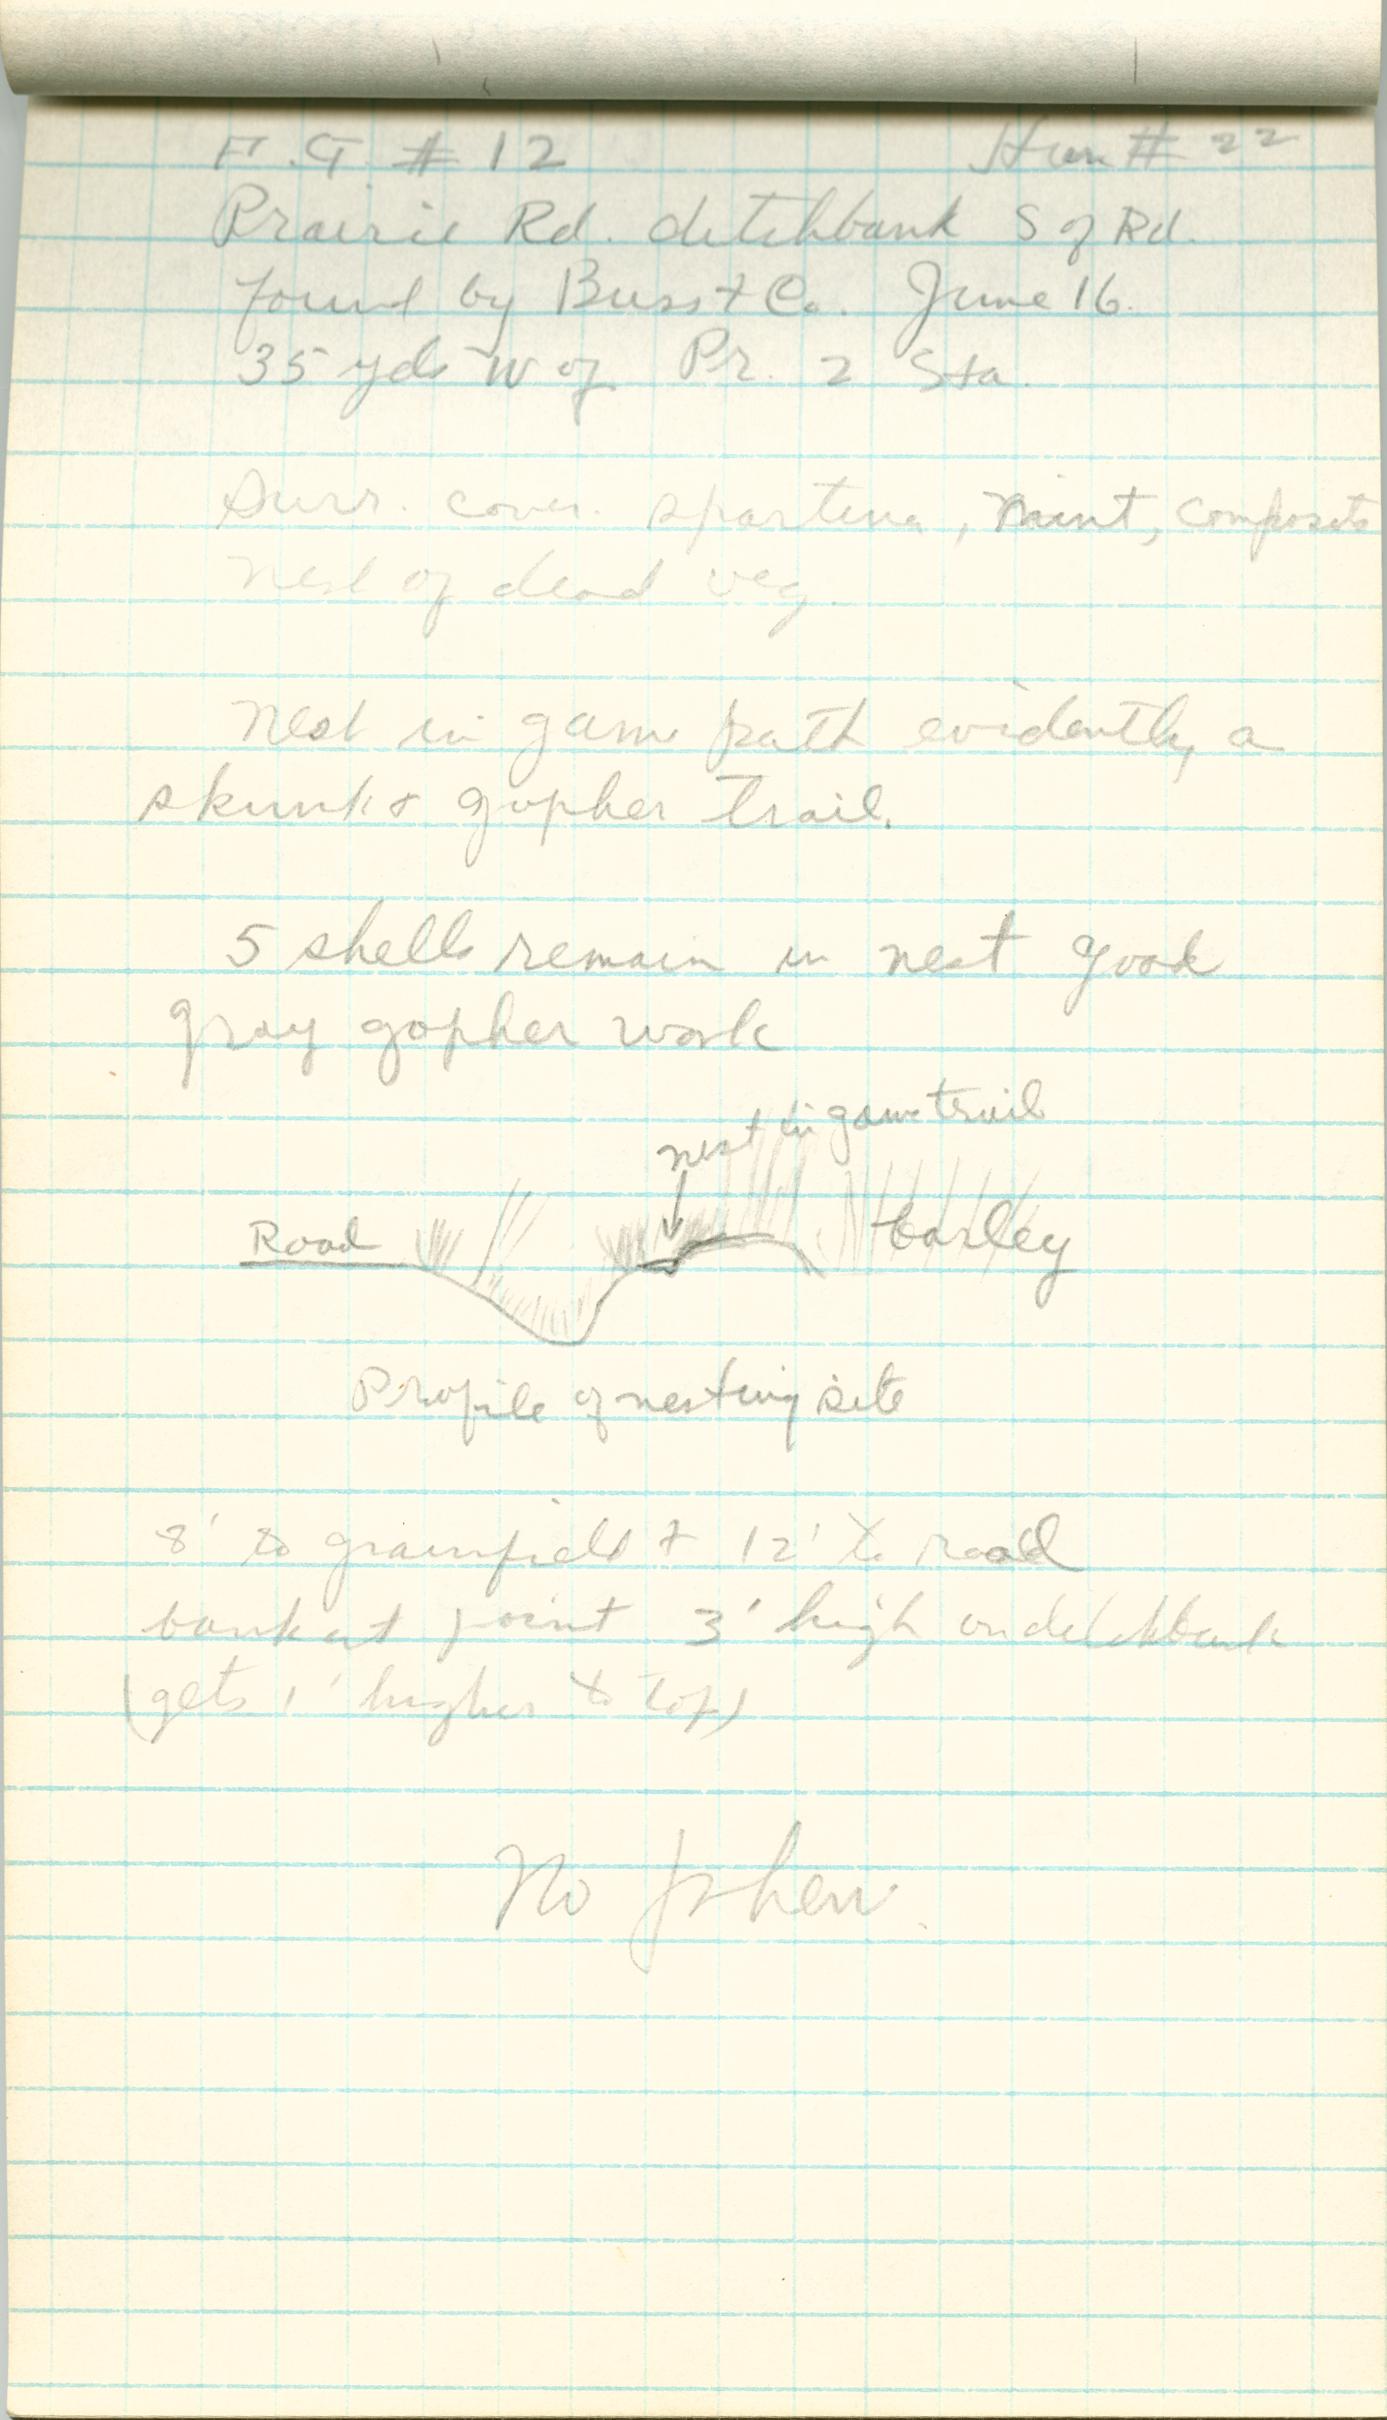 F.G. # 12 Hun # 22
Prairie Rd. ditchbank S of Rd.
found by Buss + Co. June 16.
35 yds W of Pr. 2 Sta.
Surr. cover. spartina, mint, composits
Nest of dead veg.
Nest in game path evidently a
skunk + gopher trail.
5 shells remain in nest good
gray gopher work
nest in game trail
Road barley
Profile of nesting site
8' to grainfield + 12' to road
bank at point 3' high on ditchbank
(gets 1' higher to top)
No